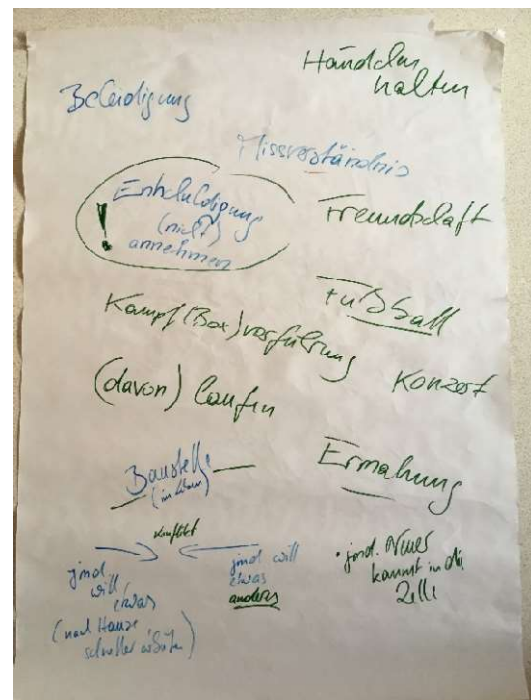 Händchen
halten
Beleidigung
Missverständnis
Entschuldigung
(nicht)
annehmen
!
Freundschaft
Fußball
Kampf(Box)vorführung
Konzert
(davon) laufen
Baustelle
Ermahung
Konflikt
jmd.
will
etwas
(nach Hause
schneller
jmd will
etwas
anders
• jmd. Neues
kommt in die
Zelle